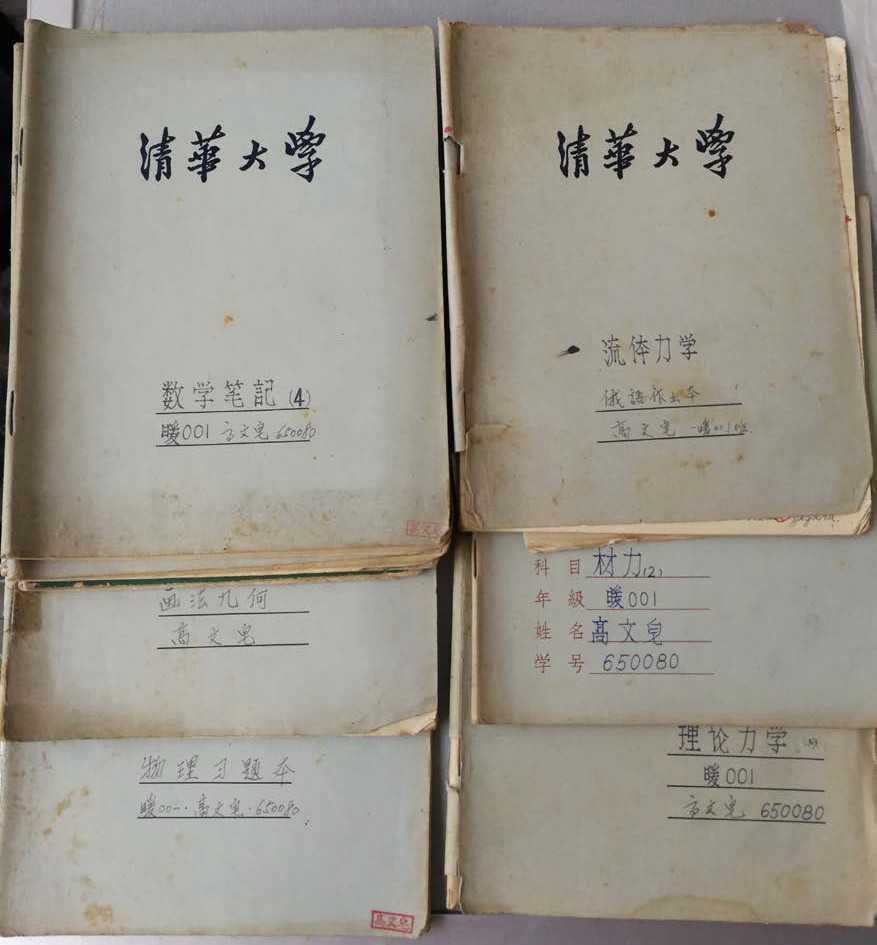 清華大学
数学笔記(4)
暖001 高文皂 650080
高文皂
画法几何
高文皂
物理习题本
暖00一·高文皂·650080
高文皂
清華大学
流体力学
俄語作业本
高文皂 一暖001班
科目 材力(2)
年級 暖001
姓名 高文皂
学号 650080
理论力学
暖001
高文皂 650080